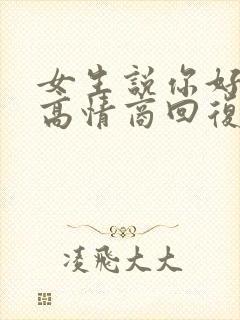 女生説你好
高情商回復
凌飛大大